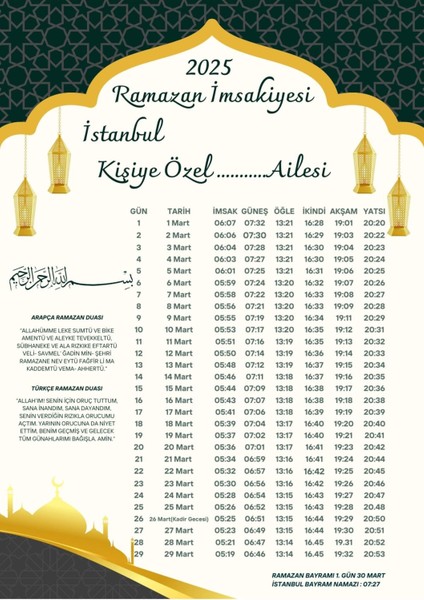 2025
Ramazan İmsakiyesi
İstanbul
Kişiye Özel ...........Ailesi
GÜN TARİH İMSAK GÜNEŞ ÖĞLE İKİNDİ AKŞAM YATSI
1 1 Mart 06:07 07:32 13:21 16:28 19:01 20:20
2 2 Mart 06:06 07:30 13:21 16:29 19:03 20:22
3 3 Mart 06:04 07:28 13:21 16:30 19:04 20:23
4 4 Mart 06:03 07:27 13:21 16:30 19:05 20:24
5 5 Mart 06:01 07:25 13:21 16:31 19:06 20:25
6 6 Mart 05:59 07:24 13:20 16:32 19:07 20:26
7 7 Mart 05:58 07:22 13:20 16:33 19:08 20:27
8 8 Mart 05:56 07:21 13:20 16:33 19:09 20:28
9 9 Mart 05:55 07:19 13:20 16:34 19:11 20:29
10 10 Mart 05:53 07:17 13:20 16:35 19:12 20:31
11 11 Mart 05:51 07:16 13:19 16:35 19:13 20:32
12 12 Mart 05:50 07:14 13:19 16:36 19:14 20:33
13 13 Mart 05:48 07:12 13:19 16:37 19:15 20:34
14 14 Mart 05:46 07:11 13:18 16:37 19:16 20:35
15 15 Mart 05:44 07:09 13:18 16:38 19:17 20:36
16 16 Mart 05:43 07:07 13:18 16:38 19:18 20:38
17 17 Mart 05:41 07:06 13:18 16:39 19:19 20:39
18 18 Mart 05:39 07:04 13:17 16:40 19:20 20:40
19 19 Mart 05:37 07:02 13:17 16:40 19:21 20:41
20 20 Mart 05:36 07:01 13:17 16:41 19:23 20:42
21 21 Mart 05:34 06:59 13:16 16:41 19:24 20:44
22 22 Mart 05:32 06:57 13:16 16:42 19:25 20:45
23 23 Mart 05:30 06:56 13:16 16:42 19:26 20:46
24 24 Mart 05:28 06:54 13:15 16:43 19:27 20:47
25 25 Mart 05:26 06:52 13:15 16:43 19:28 20:48
26 26 Mart(Kadir Gecesi) 05:25 06:51 13:15 16:44 19:29 20:50
27 27 Mart 05:23 06:49 13:15 16:44 19:30 20:51
28 28 Mart 05:21 06:47 13:14 16.45 19:31 20:52
29 29 Mart 05:19 06:46 13:14 16.45 19:32 20:53
بسم الله الرحمن الرحيم
ARAPÇA RAMAZAN DUASI
"ALLAHÜMME LEKE SUMTÜ VE BİKE
AMENTÜ VE ALEYKE TEVEKKELTÜ,
SÜBHANEKE VE ALA RIZKIKE EFTARTÜ
VELİ- SAVMEL' ĞADİN MİN- ŞEHRİ
RAMAZANE NEV EYTÜ FAĞFİR Lİ MA
KADDEMTÜ VEMA- AHHERTÜ."
TÜRKÇE RAMAZAN DUASI
"ALLAH'IM! SENİN İÇİN ORUÇ TUTTUM,
SANA İNANDIM, SANA DAYANDIM,
SENİN VERDİĞİN RIZIKLA ORUCUMU
AÇTIM. YARININ ORUCUNA DA NİYET
ETTİM; BENİM GEÇMİŞ VE GELECEK
TÜM GÜNAHLARIMI BAĞIŞLA. AMİN."
RAMAZAN BAYRAMI 1. GÜN 30 MART
İSTANBUL BAYRAM NAMAZI : 07:27